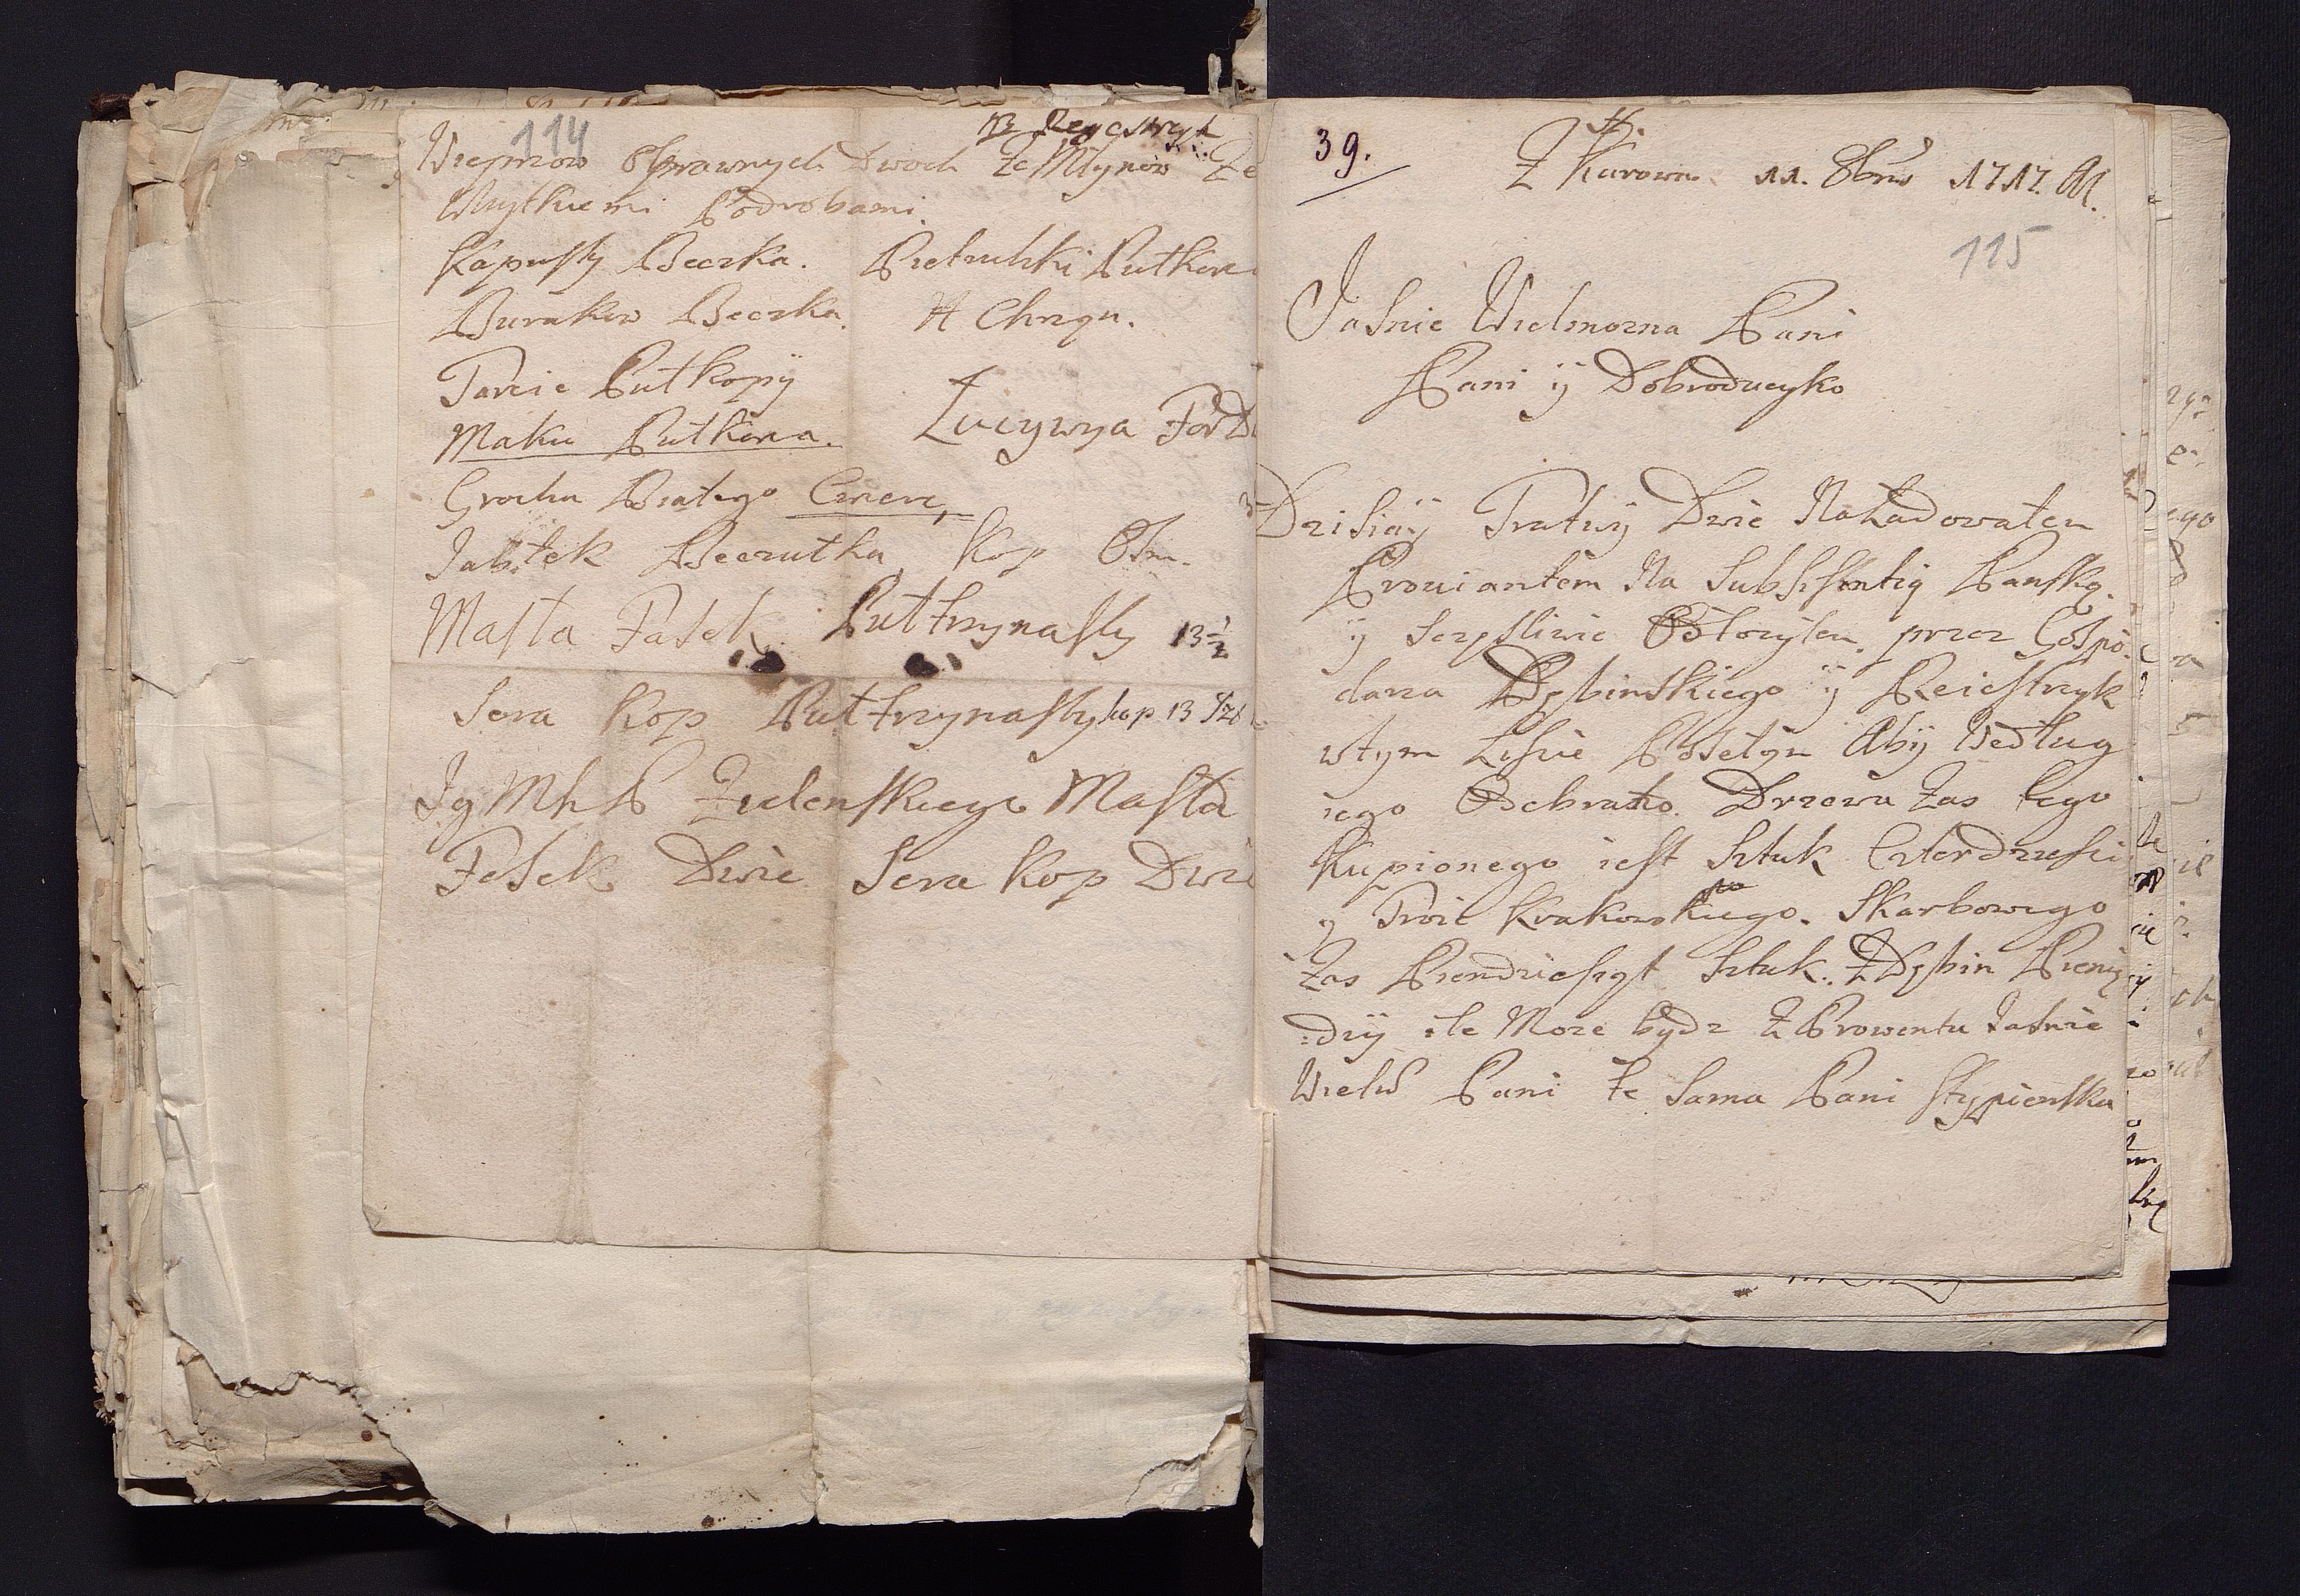 114
Wieprzow Oprawnych Dwoch Ze Młynow Ze
Wszytkiemi Podrobami.
Kapusty Beczka. Pietruszki Putkore
Burakow Beczka. A Chrzęn.
Tarcic Putkopÿ
Maku Putkorca.
Grochu Białego Cwierc,
Jabłek Beczułka kop Osm.
Masła Fasek Puttrzynasty 13½
Sera Kop Puttrzynasty kop 13
Jg Mh P Zielenskiego Masła
Fasek Dwie Sera Kop Dwie
39.
Z Kurowa 11. 8bris 1717. A.
115
Jasnie Wielmozna Pani
Pani ÿ Dobrodzieyko
Dzisiaÿ Tratwÿ Dwie Naładowałem
Prowiantem Na Subsistentią Panską.
ÿ sczęsliwie Otozyłem przez Gospo-
darza Dębinskiego ÿ Reiestrzyk
wtym Liscie Posełąm Abÿ Według
iego Odebrano. Drzewa Zas tego
Kupionego iest Sztuk Czterdziesci
y Troie Krakowskiego. Skarbowego
Zas Piendziesiąt Sztuk. Z Dębin Pienię
dzÿ ile Moze bydz Z Prowentu Jasnie
Wielm Pani Ze Sama Pani Stępienska